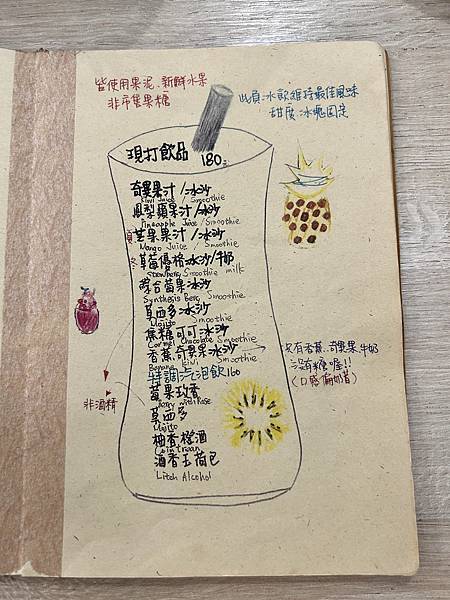 皆使用果泥、新鮮水果
非市售果糖
此頁:冰飲維持最佳風味
甜度、冰塊固定
現打飲品 180元
奇異果汁/冰沙
Kiwi Juice / Smoothie
鳳梨蘋果汁/冰沙
Pineapple Juice / Smoothie
芒果果汁/冰沙
Mango Juice / Smoothie
草莓優格冰沙/牛奶
Strawberry Smoothie milk
綜合莓果冰沙
Synthesis Berry Smoothie
莫西多冰沙
Mojito Smoothie
焦糖可可冰沙
Carmel Chocolate Smoothie
香蕉、奇異果冰沙
Banana kiwi Smoothie
只有香蕉、奇異果、牛奶
沒有糖喔!!
(口感偏奶昔)
特調汽泡飲160
莓果玫香
Berry with Rose
非酒精
莫西多
Mojito
柚香橙酒
Cointreau
酒香玉荷包
Litch Alcohol